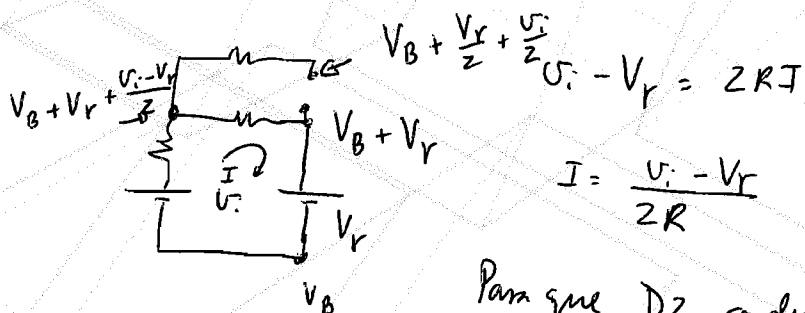 V_B + V_r/2 + v_i/2
V_B + V_r + (v_i - V_r)/2
v_i - V_r = 2RI
V_B + V_r
I
v_i
V_r
V_B
I = (v_i - V_r)/(2R)
Para que D2